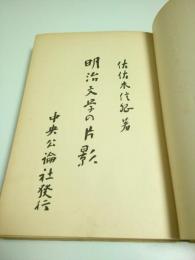 佐佐木信綱著
明治文学の片影
中央公論社発行